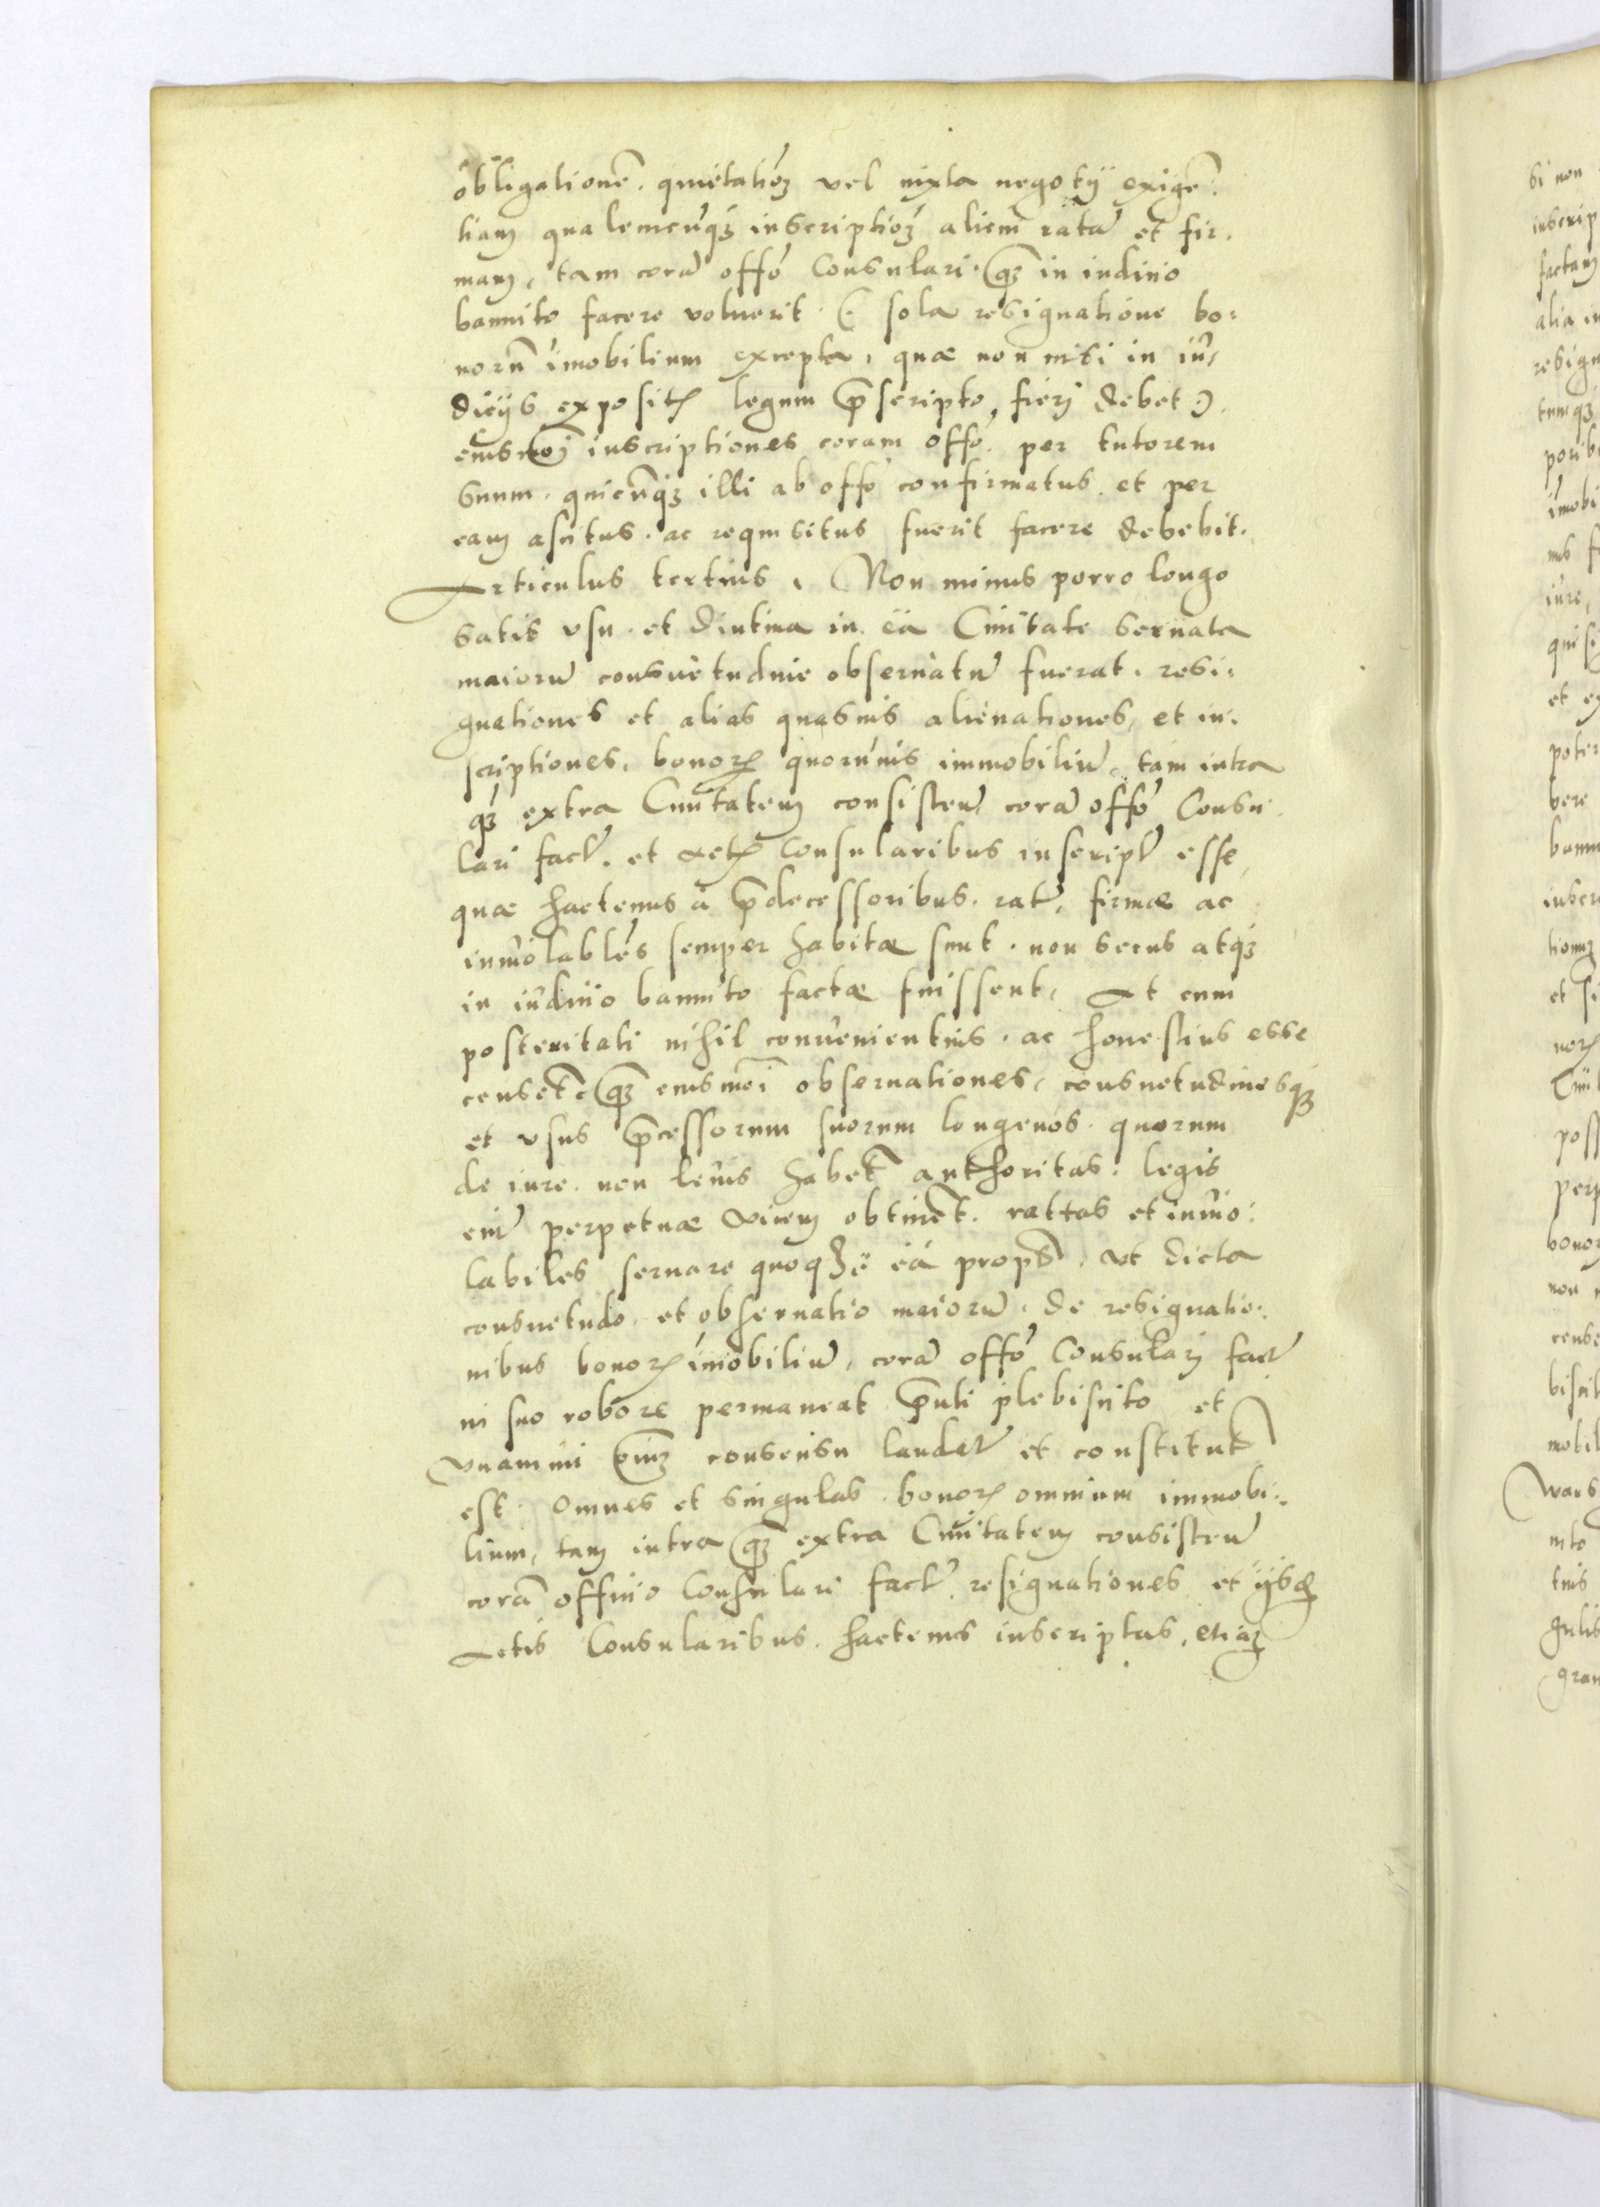 obligationē. quietatiōꝫ vel iuxta negotij exigē-
tiam qualemcūqꝫ inscriptiōꝫ alicui ratā et fir-
mam, tam corā offō Consulari qꝫ in iudicio
bannito facere voluerit (sola resignatione bo-
norū imobilium excepta, quæ non nisi in iu-
dicijs expositꝭ legum p̄scripto, fieri debet)
eiusmōi inscriptiones coram offō per tutorem
suum. quicūqꝫ illi ab offō confirmatus et per
eam ascitus. ac requisitus fuerit facere debebit.
Articulus tertius, Non minus porro longo
satis vsu. et diutina in eā Ciuitate seruata
maiorū consuetudine obseruatū fuerat. resi-
gnationes et alias quasuis alienationes, et in-
scriptiones, bonoꝝ quorumuis immobiliū, tam intra
qꝫ extra Ciuitatem consisteñ corā offō Consu-
lari fact̄. et Actꝭ Consularibus inscript̄ esse,
quæ hactenus à p̄decessoribus. rat̄, firmæ ac
inuiolabiles semper habitæ sunt. non secus atqꝫ
in iudicio bannito factæ fuissent, At cum
posteritati nihil conuenientius. ac honestius esse
censet̄ qꝫ eiusmōi obseruationes, consuetudinesqꝫ
et vsus p̄cessorum suorum longeuos. quorum
de iure. non leuis habet̄ authoritas. legis
eñ perpetuæ vicem obtinēt. rattas et inuio-
labiles seruare quoqꝫ ëä propt̄, vt dicta
consuetudo. et obseruatio maiorū. de resignatio-
nibus bonoꝝ imobiliū, corā offō Consulari fact̄
in suo robore permaneat p̄nti plebiscito et
vnanimi oīuꝫ consensu laudat̄ et constitut̄
est. Omnes et singulas bonoꝝ omnium immobi-
lium, tam intra qꝫ extra Ciuitatem consisteñ
corā officio Consulari fact̄ resignationes et ijsdē
Actis Consularibus. hactenus inscriptas, etiaꝫ